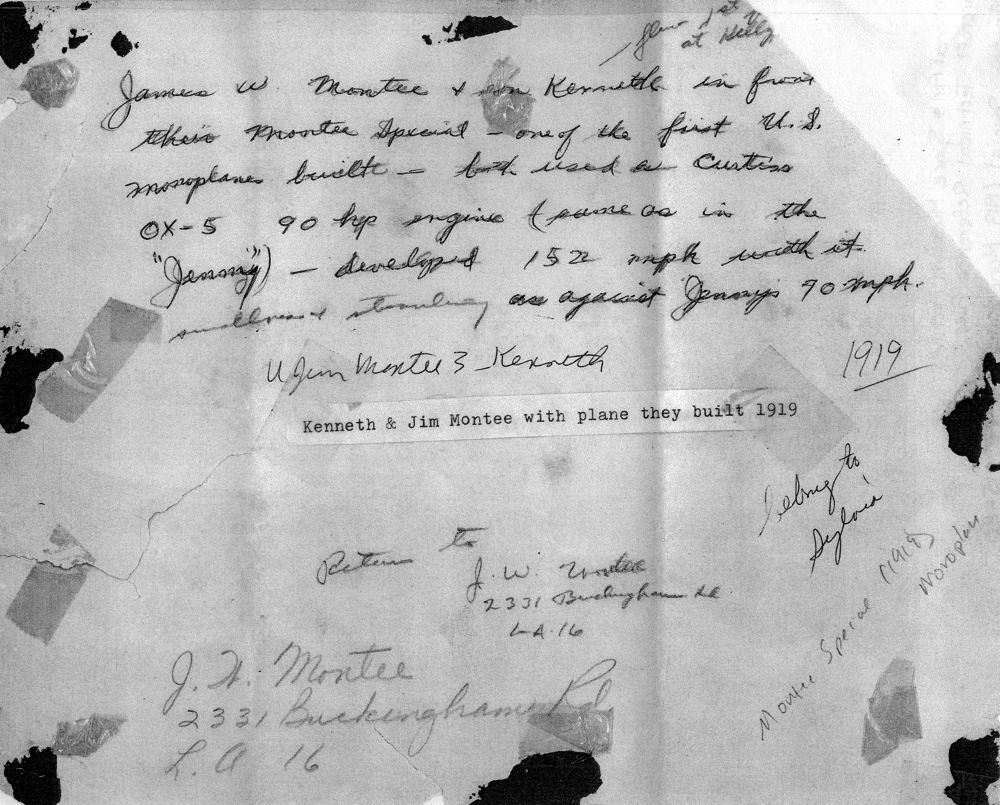 flew 1st
at Kelly
James W. Montee & son Kenneth in front
their Montee Special — one of the first U.S.
monoplanes built — both used a Curtiss
OX-5 90 hp engine (same as in the
"Jenny") — developed 152 mph with it
smallness & streamlining as against Jenny's 90 mph.
Jim Montee 3 - Kenneth
1919
Kenneth & Jim Montee with plane they built 1919
belong to
Sylvia
Return to
J. W. Montee
2331 Buckingham Rd
LA 16
Montee Special (1918)
Monoplane
J. W. Montee
2331 Buckingham Rd
L. A 16